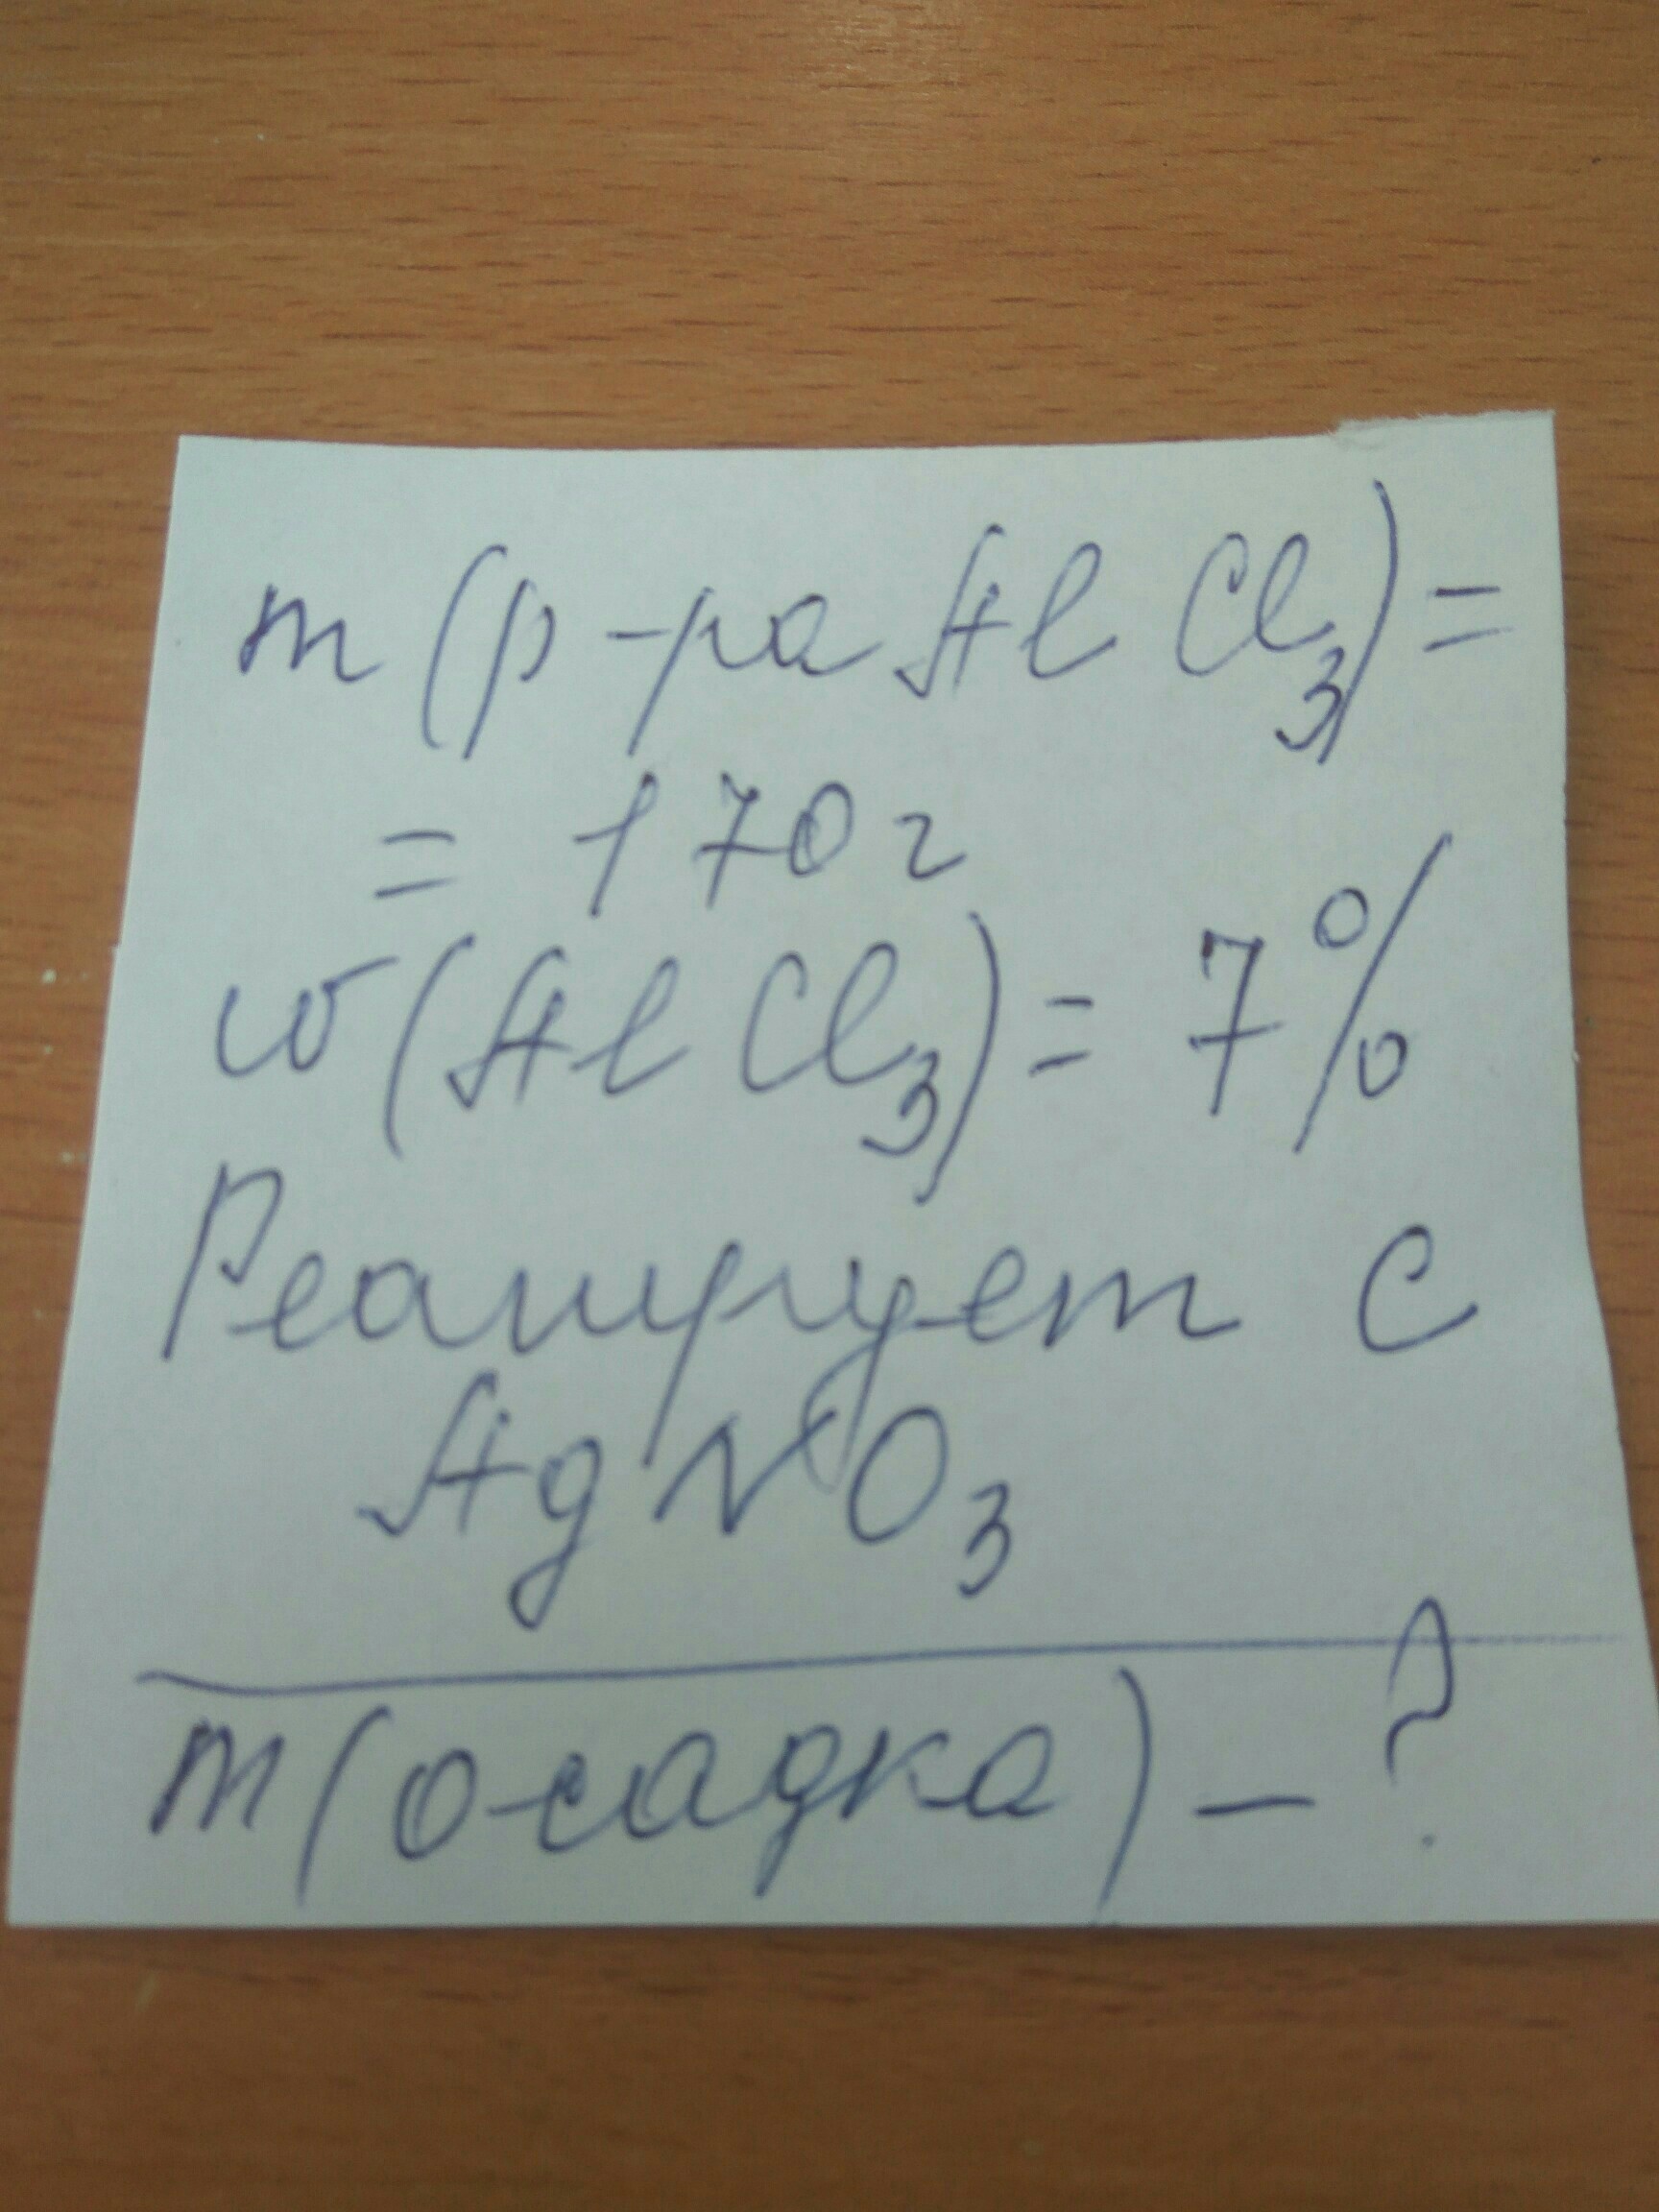 m(р-ра AlCl₃)=
= 170г
w(AlCl₃)= 7%
Реагирует с
AgNO₃
m(осадка) – ?